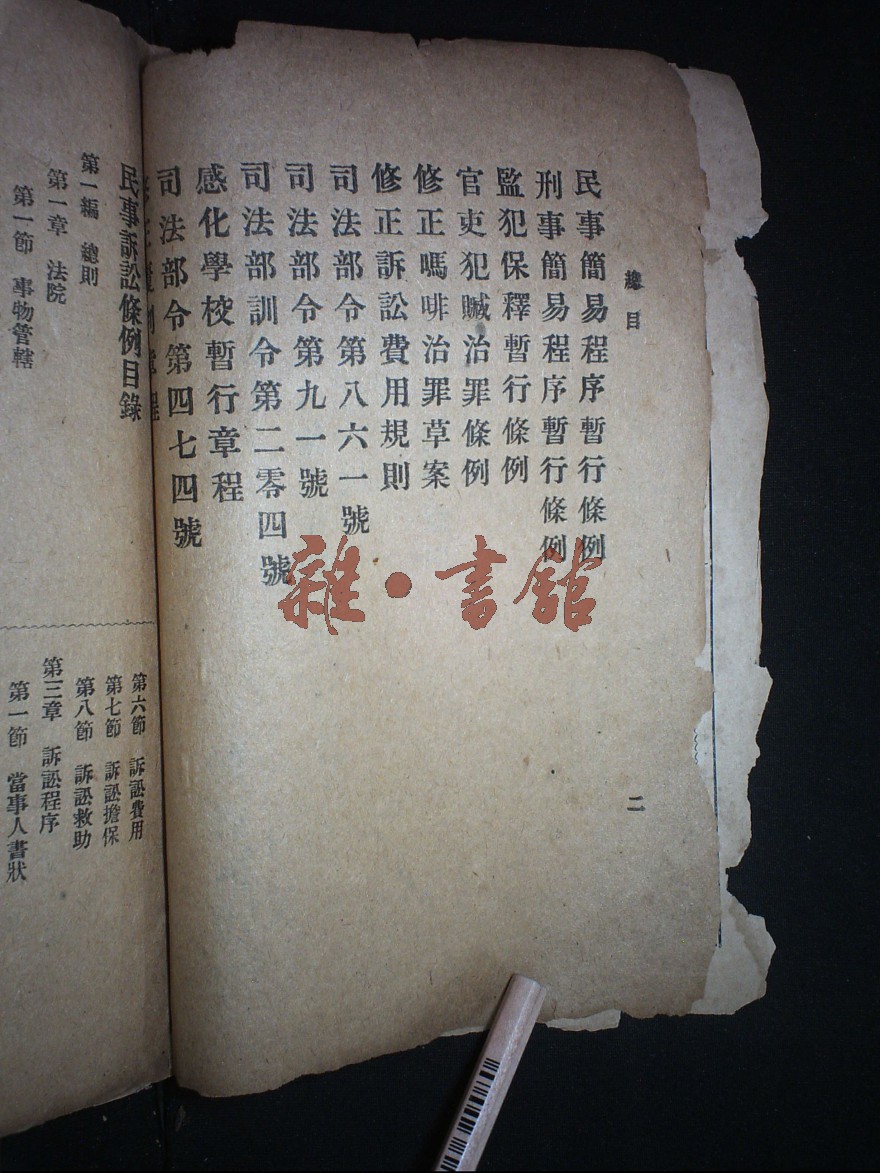 總目
二
民事簡易程序暫行條例
刑事簡易程序暫行條例
監犯保釋暫行條例
官吏犯贓治罪條例
修正嗎啡治罪草案
修正訴訟費用規則
司法部令第八六一號
司法部令第九一號
司法部訓令第二零四號
感化學校暫行章程
司法部令第四七四號
民事訴訟條例目錄
第一編 總則
第一章 法院
第一節 事物管轄
第六節 訴訟費用
第七節 訴訟擔保
第八節 訴訟救助
第三章 訴訟程序
第一節 當事人書狀
雜·書館